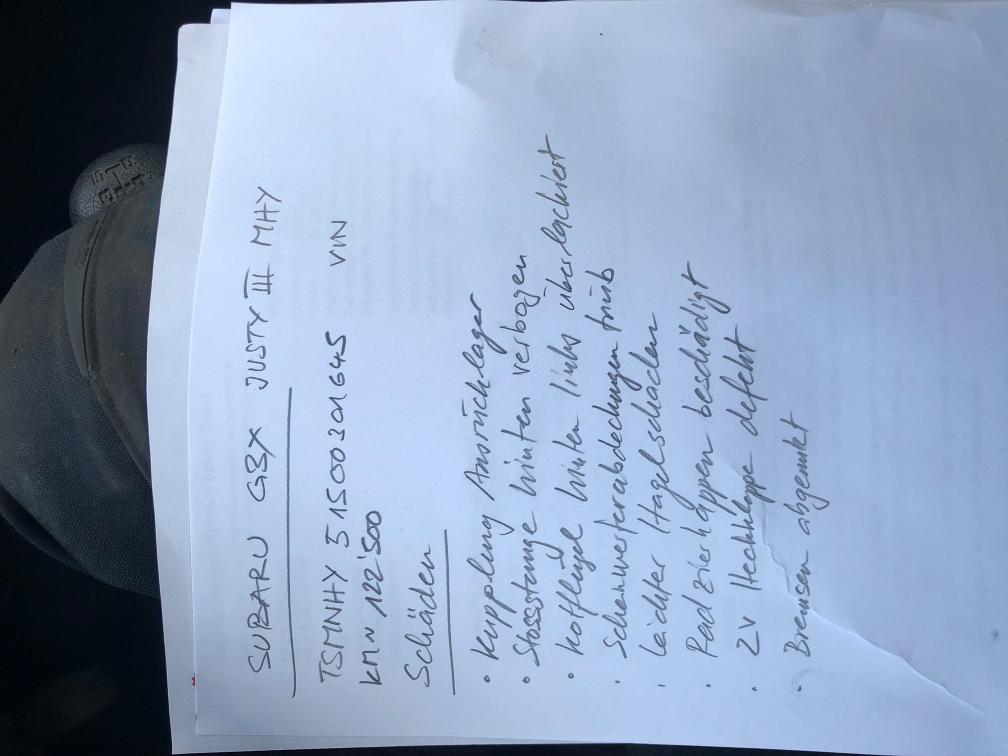 SUBARU G3X JUSTY III MHY
TSMNHY 51500301645 VIN
KMN 122'500
Schäden
• Kupplung Ausrücklager
• Stossstange hinten verbogen
• Kotflügel hinten links überlackiert
• Scheinwerferabdeckungen trüb
• Leichter Hagelschaden
• Radzierkappen beschädigt
• ZV Heckklappe defekt
• Bremsen abgenutzt